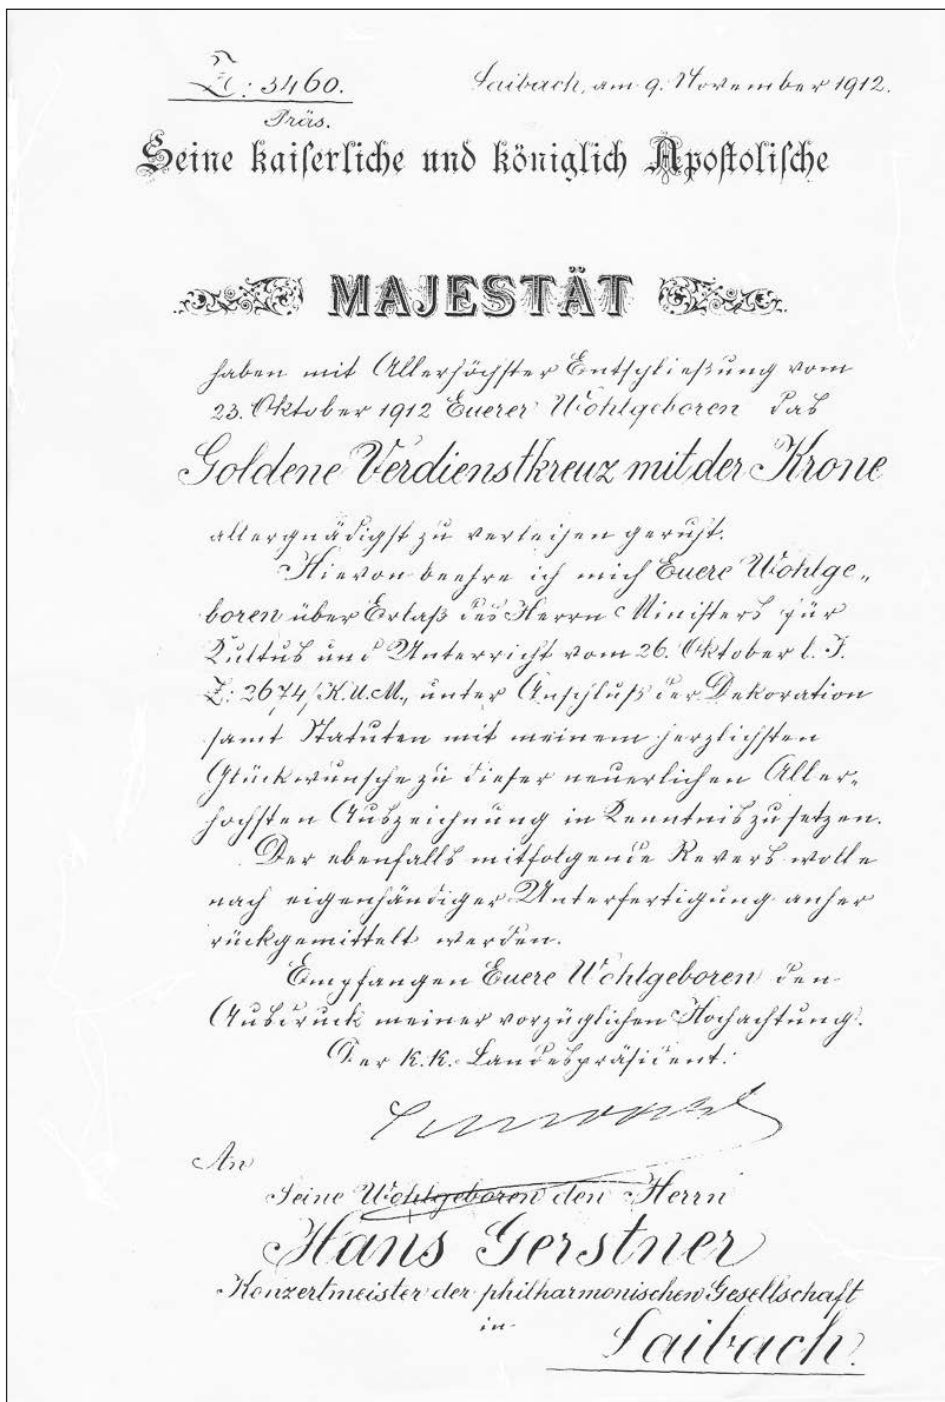 Z: 3460.
Präs.
Laibach, am 9. November 1912.
Seine kaiserliche und königlich Apostolische
MAJESTÄT
haben mit Allerhöchster Entschließung vom
23. Oktober 1912 Euerer Wohlgeboren das
Goldene Verdienstkreuz mit der Krone
allergnädigst zu verleihen geruht.
Hievon beehre ich mich Euere Wohlge„
boren über Erlaß des Herrn Ministers für
Kultus und Unterricht vom 26. Oktober l. J.
Z: 2674/K.U.M., unter Anschluß der Dekoration
samt Statuten mit meinem herzlichsten
Glückwunsche zu dieser neuerlichen Aller-
höchsten Auszeichnung in Kenntnis zu setzen.
Der ebenfalls mitfolgende Revers wolle
nach eigenhändiger Unterfertigung anher
rückgemittelt werden.
Empfangen Euere Wohlgeboren den
Ausdruck meiner vorzüglichen Hochachtung.
Der k.k. Landespräsident:
An
Seine Wohlgeboren den Herrn
Hans Gerstner
Konzertmeister der philharmonischen Gesellschaft
in
Laibach.